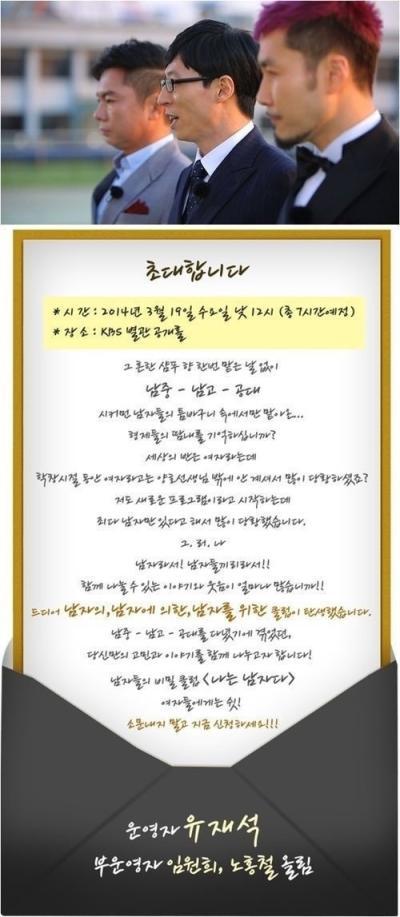 초대합니다
* 시 간 : 2014년 3월 19일 수요일 낮 12시 (총 7시간예정)
* 장 소 : KBS 별관 공개홀
그 흔한 샴푸 향 한번 맡은 날 없이
남중 - 남고 - 공대
시커먼 남자들의 틈바구니 속에서만 맡아온...
형제들의 땀내를 기억하십니까?
세상의 반은 여자라는데
학창시절 동안 여자라고는 양호선생님 밖에 안 계셔서 많이 당황하셨죠?
저도 새로운 프로그램이라고 시작하는데
죄다 남자만 있다고 해서 많이 당황했습니다.
그. 러. 나
남자라서! 남자들끼리라서!!
함께 나눌 수 있는 이야기와 웃음이 얼마나 많습니까!!
드디어 남자의, 남자에 의한, 남자를 위한 클럽이 탄생했습니다.
남중 - 남고 - 공대를 다녔기에 겪었던,
당신만의 고민과 이야기를 함께 나누고자 합니다!
남자들의 비밀 클럽 <나는 남자다>
여자들에게는 쉿!
소문내지 말고 지금 신청하세요!!!
운영자 유재석
부운영자 임원희, 노홍철 올림